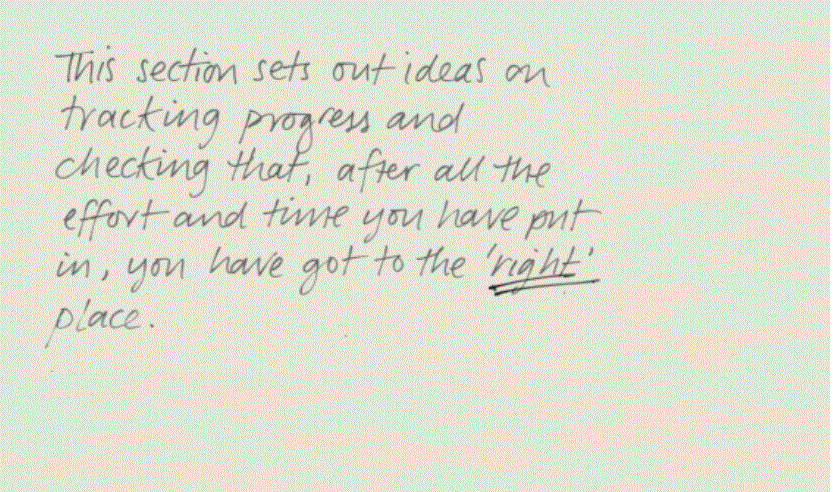 This section sets out ideas on
tracking progress and
checking that, after all the
effort and time you have put
in, you have got to the 'right'
place.